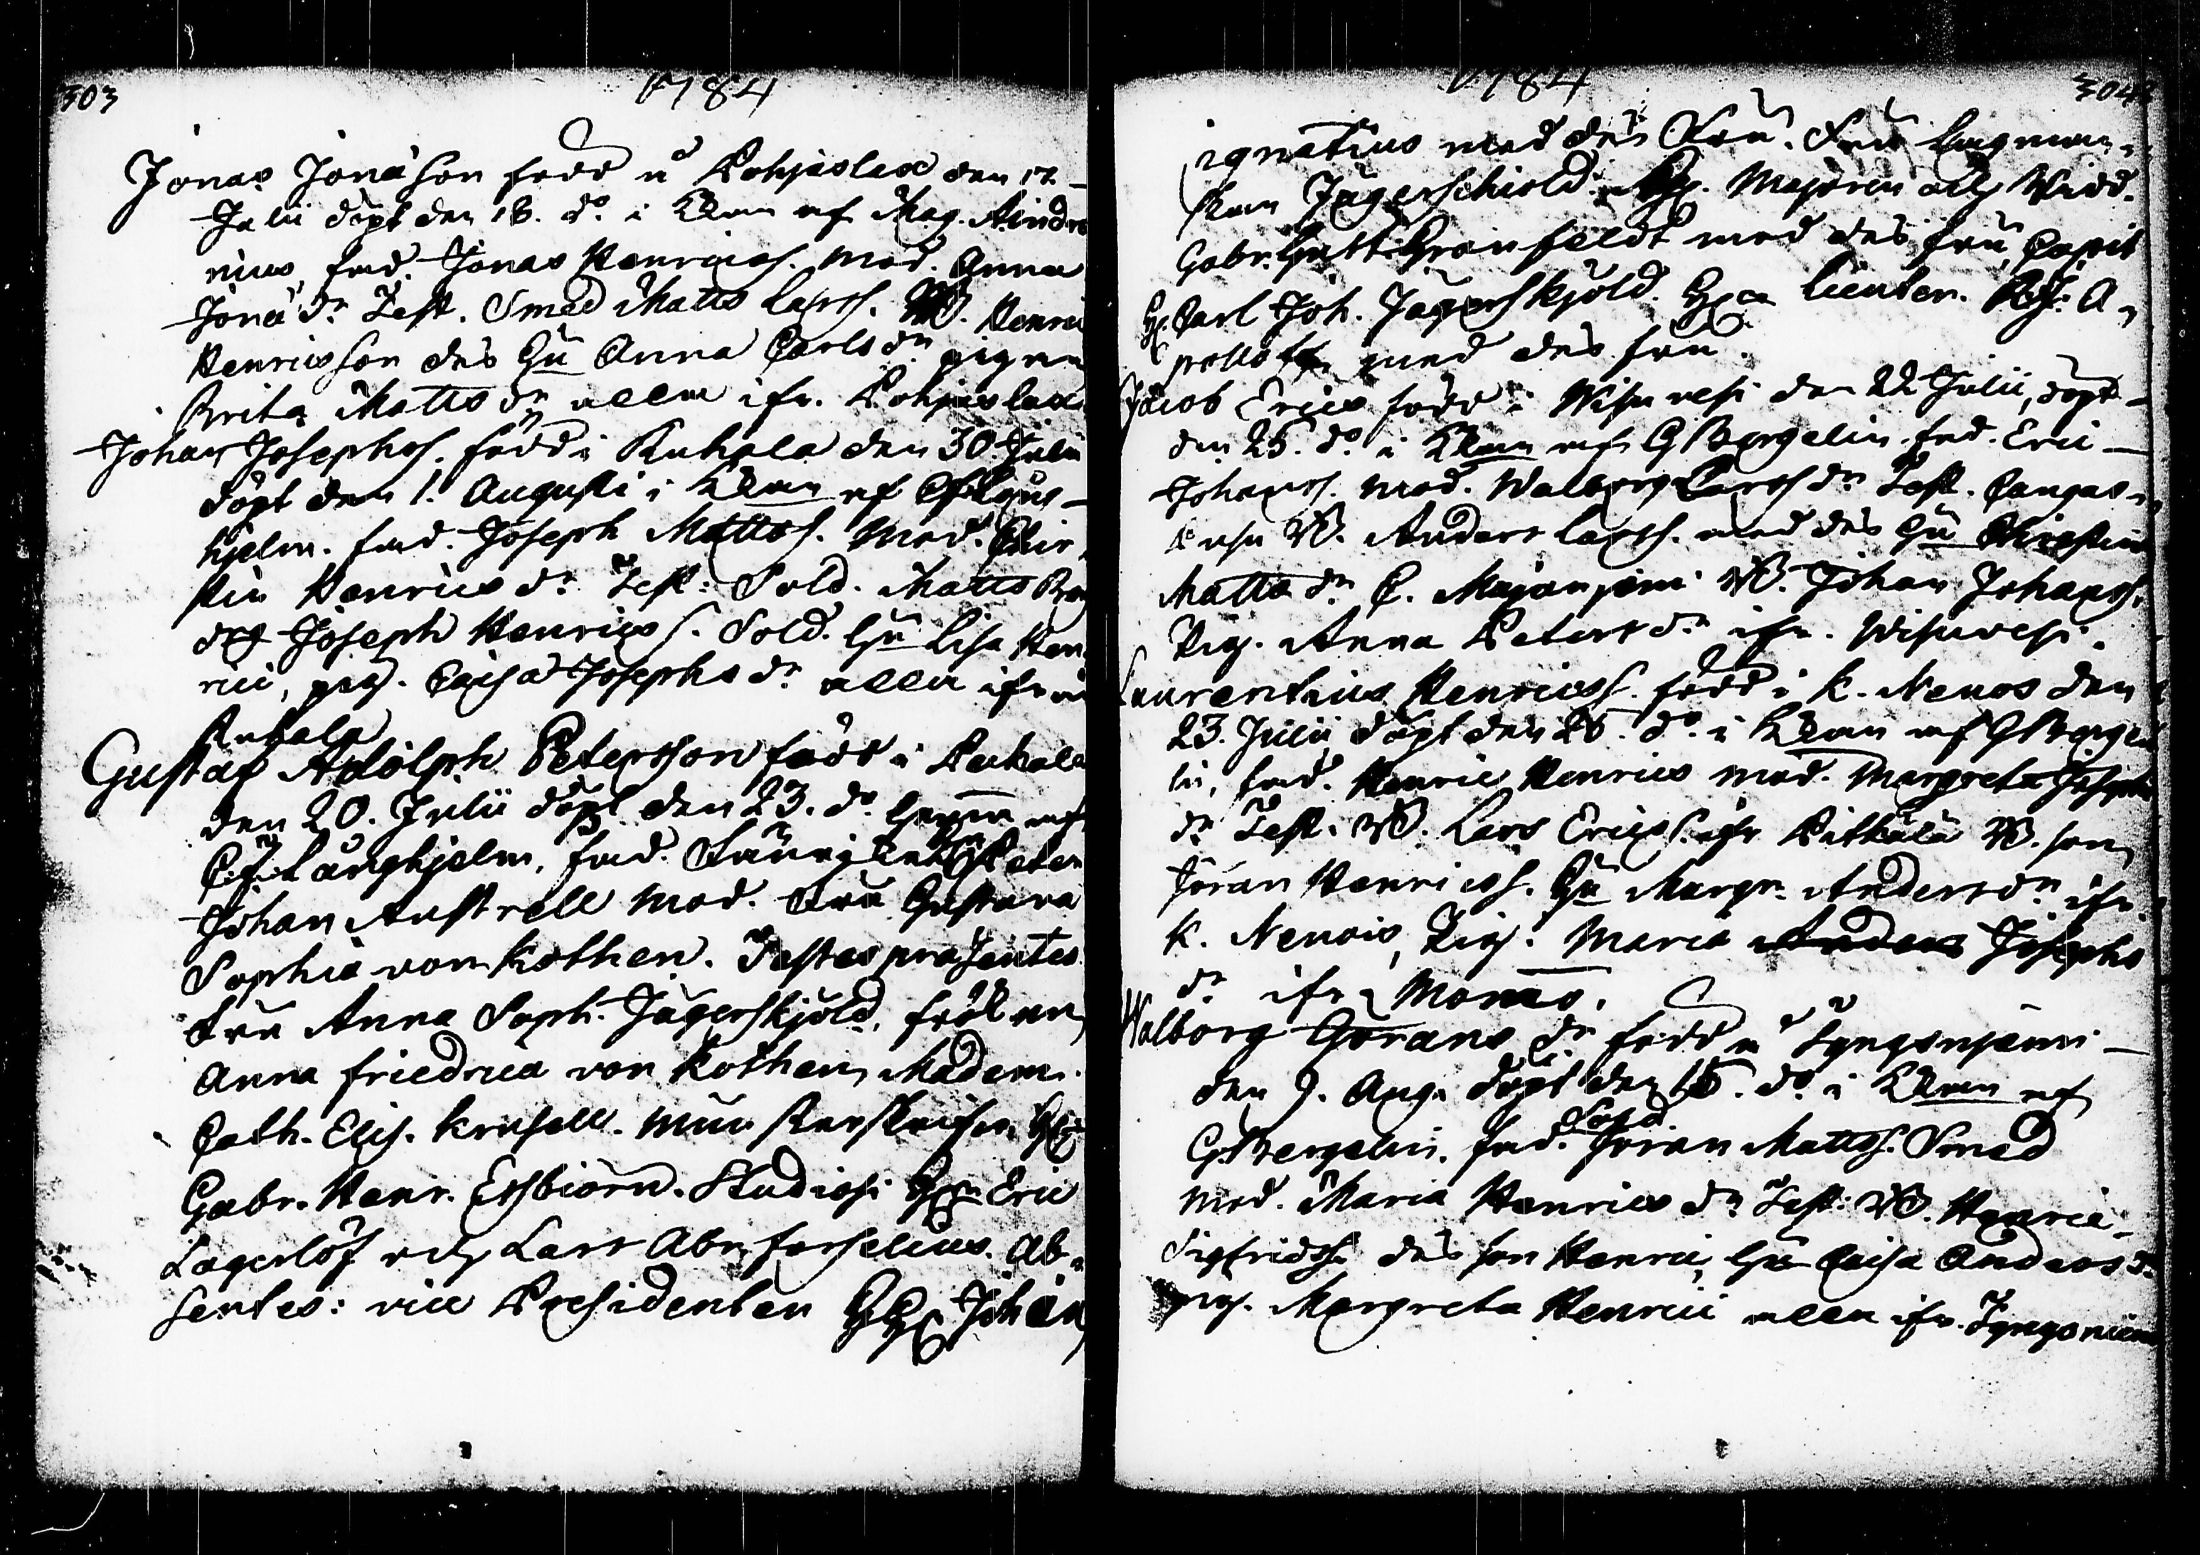 303
1784
Jonas Jonasson född i Pohjaslax den 17
Julii döpt den 18. do. i Kkan af Mag.
nius, fad. Jonas Henricss. Mod. Anna
Jonä dr. Test. Smed Matts Larss. B. Henric
Henricsson des hu Anna Carls dr pigan
Brita Matts dr alla ifr. Pohjaslax
Johan Josephs. född i Ruhala den 30. Julii
döpt den 1. Augusti i Kkan af CF Lång-
hjelm. fad. Joseph Mattss. Mod. Chir-
stin Henrics dr Test: Sold. Matts
Joseph Henricss. Sold. hu Lisa Hen-
rici, pig. Caisa Josephs dr alla ifrån
Ruhala
Gustaf Adolph Petersson född i
den 20. Julii döpt den 23. do. hemma af
C.F. Långhjelm, fad. Peter
Johan Austrell Mod. Fru Gustava
Sophia von Kothen. Testes præsentes
Fru Anna Soph. Jägerskjöld, fröken
Anna Friedrica von Kothen, Madem.
Cath. Elis. Krusell.
Gabr. Henr. Essbiörn. Studiosi Eric
Lagerlöf och Lars Abr. Forselius. Ab-
sentes: vice Presidenten Johan
1784
304
ignatius med des Fru. Fru Lagman-
skan Jägerschiold. Majoren och Ridd.
Gabr. Gust. Granfeldt med des fru, Capit
Carl Joh. Jägerskjöld. Lieuten. A-
polloff med des fru.
Jacob Erics född i Wisuvesi den 22 Julii, döpt
den 25. do. i Kkan af G Bergelin. fad. Eric
Johanss. Mod. Walborg Larss dr Test. Cangas-
B. Anders Larss. med des hu Christina
Matts dr C. B. Johan Johanss.
Pig. Anna Peters dr ifr. Wisuvesi.
Laurentius Henricss. född i K. Nenois den
23. Julii döpt den 25. do. i Kkan af G Berge-
lin, fad. Henric Henrics mod. Margreta Josephs
dr Test. B. Lars Ericss. ifr Pitkälä B. son
Jöran Henricss. hu Margr. Anders dr ifr.
K. Nenois, Pig. Maria Anders Josephs
dr ifr.
Walborg Görans dr född i Tyngsnjemi
den 9. Aug. döpt den 15. do. i Kkan af
G. Bergelin. fad. Sold. Jöran Mattss. Smed
Mod. Maria Henrics dr Test: B. Henric
Sigfridss. des son Henric, hu Caisa Anders dr
pig. Margreta Henrici alla ifr.